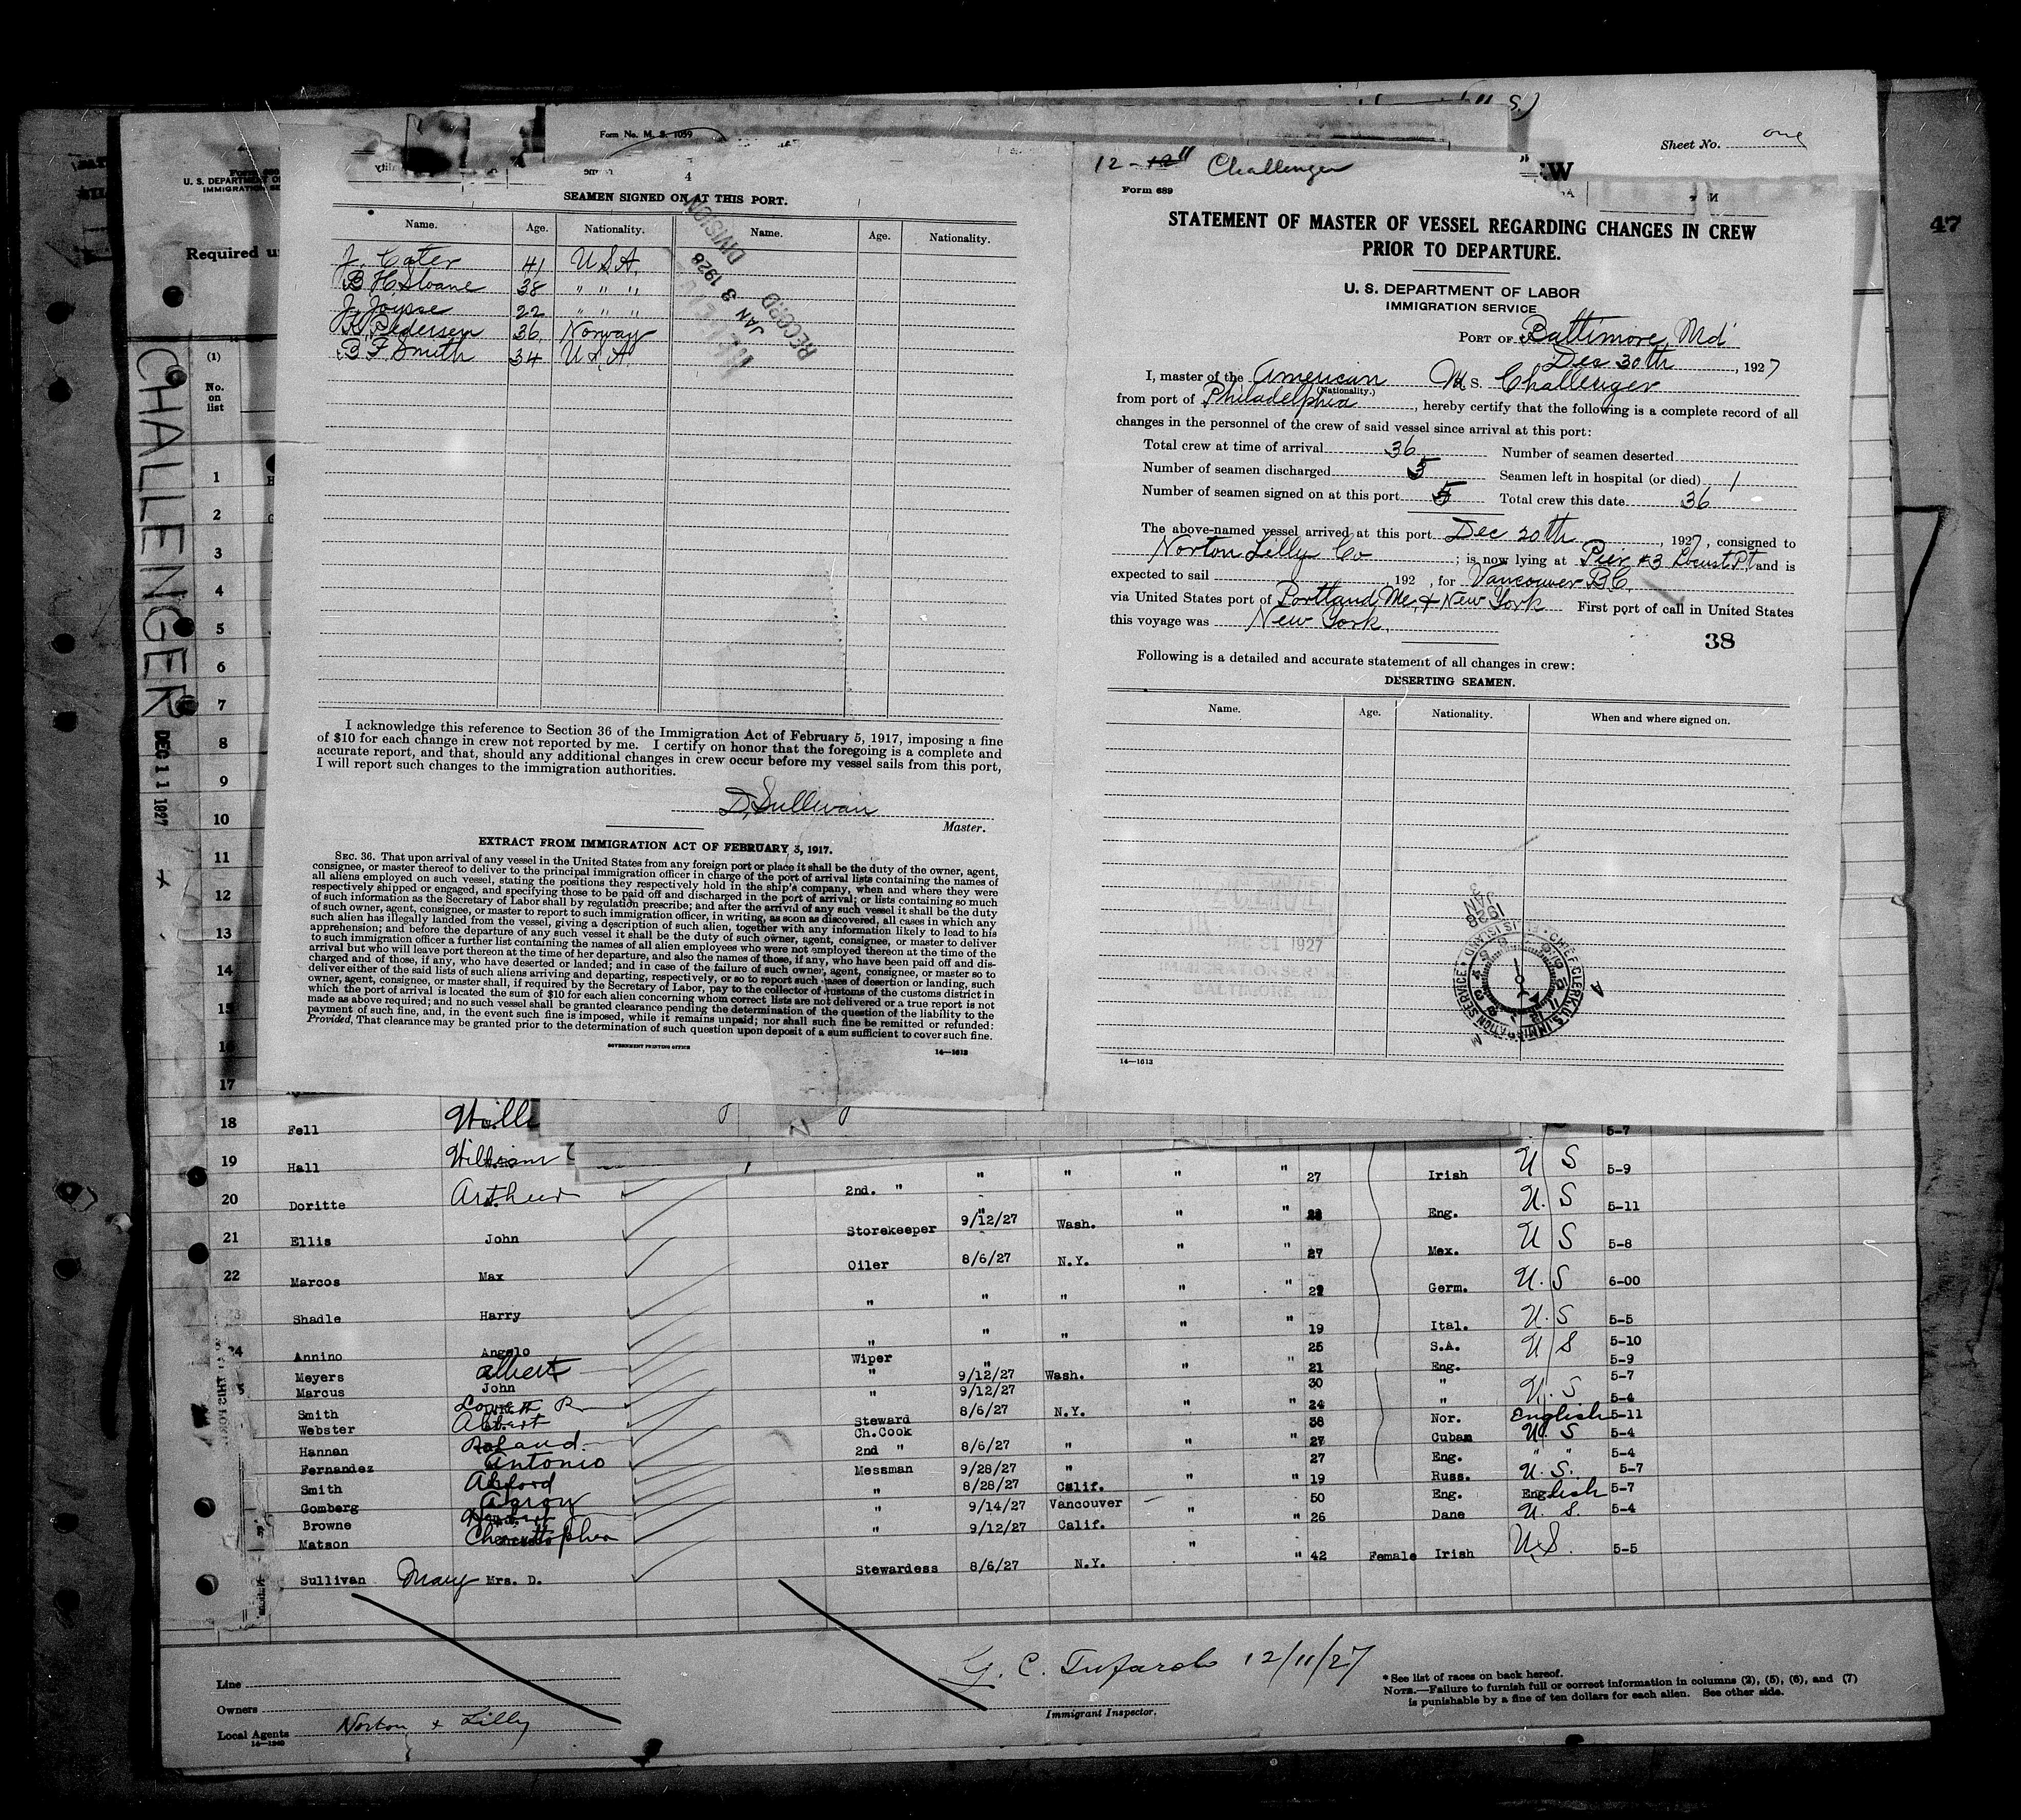 Form No. M. S. 1059
4
SEAMEN SIGNED ON AT THIS PORT.
Name. Age. Nationality. Name. Age. Nationality.
J. Cater 41 U.S.A.
B H Sloane 38 " " "
J. Joysse 22 " " "
Pedersen 36 Norway
B F Smith 34 U.S.A.
RECORD
JAN 3 1928
DIVISION
I acknowledge this reference to Section 36 of the Immigration Act of February 5, 1917, imposing a fine
of $10 for each change in crew not reported by me. I certify on honor that the foregoing is a complete and
accurate report, and that, should any additional changes in crew occur before my vessel sails from this port,
I will report such changes to the immigration authorities.
D, Sullivan
Master.
EXTRACT FROM IMMIGRATION ACT OF FEBRUARY 5, 1917.
SEC. 36. That upon arrival of any vessel in the United States from any foreign port or place it shall be the duty of the owner, agent,
consignee, or master thereof to deliver to the principal immigration officer in charge of the port of arrival lists containing the names of
all aliens employed on such vessel, stating the positions they respectively hold in the ship's company, when and where they were
respectively shipped or engaged, and specifying those to be paid off and discharged in the port of arrival; or lists containing so much
of such information as the Secretary of Labor shall by regulation prescribe; and after the arrival of any such vessel it shall be the duty
of such owner, agent, consignee, or master to report to such immigration officer, in writing, as soon as discovered, all cases in which any
such alien has illegally landed from the vessel, giving a description of such alien, together with any information likely to lead to his
apprehension; and before the departure of any such vessel it shall be the duty of such owner, agent, consignee, or master to deliver
to such immigration officer a further list containing the names of all alien employees who were not employed thereon at the time of the
arrival but who will leave port thereon at the time of her departure, and also the names of those, if any, who have been paid off and dis-
charged and of those, if any, who have deserted or landed; and in case of the failure of such owner, agent, consignee, or master so to
deliver either of the said lists of such aliens arriving and departing, respectively, or so to report such cases of desertion or landing, such
owner, agent, consignee, or master, shall, if required by the Secretary of Labor, pay to the collector of customs of the customs district in
which the port of arrival is located the sum of $10 for each alien concerning whom correct lists are not delivered or a true report is not
made as above required; and no such vessel shall be granted clearance pending the determination of the question of the liability to the
payment of such fine, and, in the event such fine is imposed, while it remains unpaid; nor shall such fine be remitted or refunded:
Provided, That clearance may be granted prior to the determination of such question upon deposit of a sum sufficient to cover such fine.
GOVERNMENT PRINTING OFFICE 14—1613
Sheet No. one
12 - 11 Challenger
Form 689
STATEMENT OF MASTER OF VESSEL REGARDING CHANGES IN CREW
PRIOR TO DEPARTURE.
U. S. DEPARTMENT OF LABOR
IMMIGRATION SERVICE
PORT OF Baltimore, Md
Dec 30th, 1927
I, master of the American M S. Challenger
(Nationality.)
from port of Philadelphia, hereby certify that the following is a complete record of all
changes in the personnel of the crew of said vessel since arrival at this port:
Total crew at time of arrival 36 Number of seamen deserted
Number of seamen discharged 5 Seamen left in hospital (or died) 1
Number of seamen signed on at this port 5 Total crew this date 36
The above-named vessel arrived at this port Dec 20th, 1927, consigned to
Norton Lilly Co; is now lying at Pier #3 Locust Pt, and is
expected to sail , 192 , for Vancouver B.C.
via United States port of Portland, Me, & New York First port of call in United States
this voyage was New York.
38
Following is a detailed and accurate statement of all changes in crew:
DESERTING SEAMEN.
Name. Age. Nationality. When and where signed on.
31 1927
IMMIGRATION SERVICE
BALTIMORE, MD
1928 JAN 3
CHIEF CLERK, U.S. IMMIGRATION SERVICE ELLIS ISLAND
14—1613
U. S. DEPARTMENT O
IMMIGRATION SE
Required u
47
(1)
No.
on
list
CHALLENGER
DEC 11 1927
1
2
3
4
5
6
7
8
9
10
11
12
13
14
15
16
17
18 Fell Will 5-7
19 Hall William " " " " 27 Irish U S 5-9
20 Doritte Arthur 2nd. " " " " Eng. U. S 5-11
21 Ellis John Storekeeper 9/12/27 Wash. " " 27 Mex. U S 5-8
22 Marcos Max Oiler 8/6/27 N.Y. " " Germ. U. S 6-00
Shadle Harry " " " " " 19 Ital. U. S 5-5
24 Annino Angelo " " " 25 S.A. U S 5-10
Meyers Albert Wiper " " 21 Eng. 5-9
Marcus John " 9/12/27 Wash. 30 " 5-7
Smith R " 9/12/27 " " 24 " U. S 5-4
Webster Albert Steward 8/6/27 N.Y. 38 Nor. English 5-11
Hannan Roland Ch.Cook " " 27 Cuban U. S 5-4
Fernandez Antonio 2nd " 8/6/27 " 27 Eng. " " 5-4
Smith Alford Messman 9/28/27 " " " 19 Russ. U. S. 5-7
Gomberg Aaron " 8/28/27 Calif. 50 Eng. English 5-7
Browne " 9/14/27 Vancouver " " 26 Dane U. S. 5-4
Matson Christopher " 9/12/27 Calif.
Sullivan Mary Mrs. D. Stewardess 8/6/27 N.Y. " " 42 Female Irish U.S. 5-5
Line
Owners
Local Agents Norton & Lilly
14—1240
G. C. Tufarolo 12/11/27
Immigrant Inspector.
* See list of races on back hereof.
NOTE.—Failure to furnish full or correct information in columns (2), (5), (6), and (7)
is punishable by a fine of ten dollars for each alien. See other side.